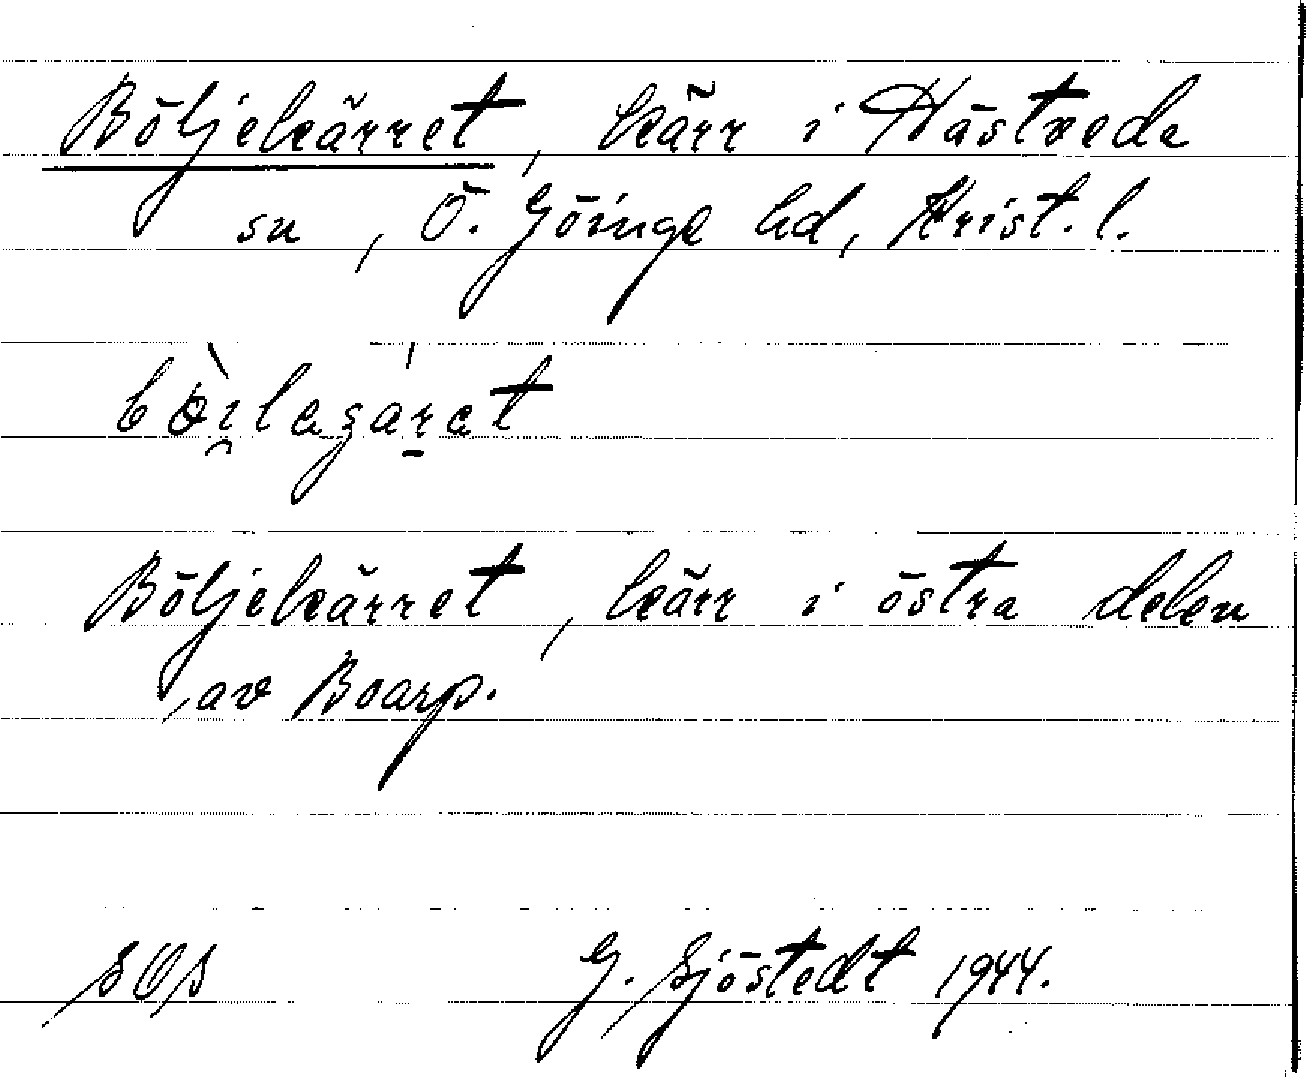 Böljekärret, kärr i Hästveda
sn, Ö. Göinge hd, Krist. l.
Böljekärret, kärr i östra delen
av Boarp.
SOS G. Sjöstedt 1944.